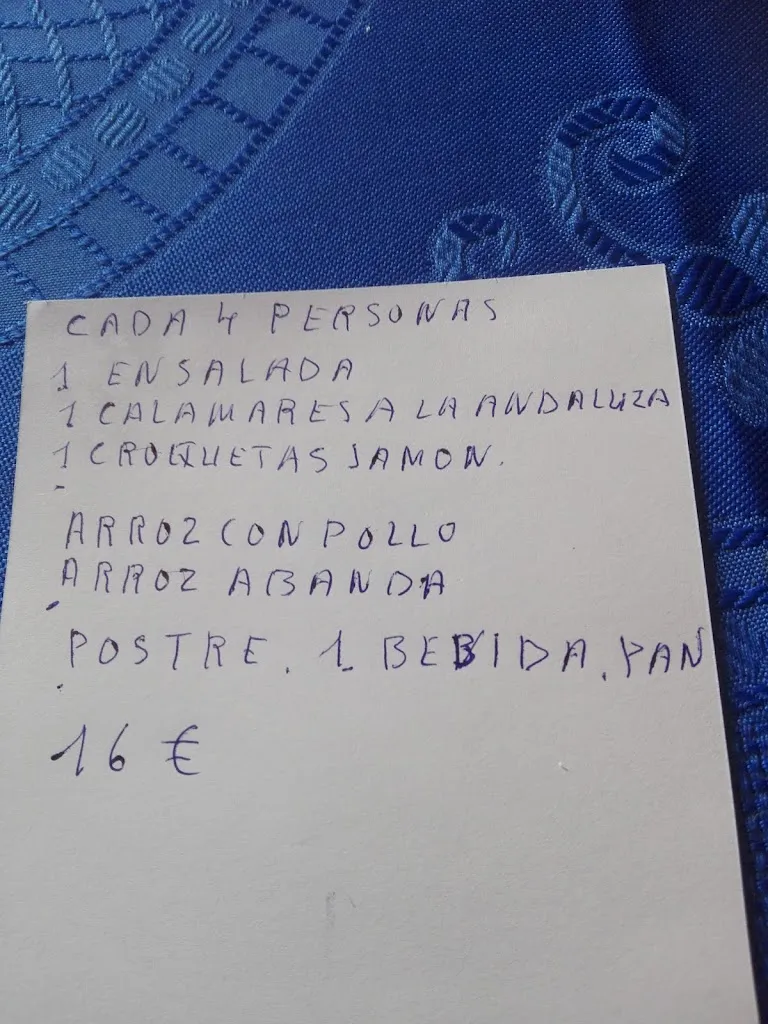 CADA 4 PERSONAS
1 ENSALADA
1 CALAMARES A LA ANDALUZA
1 CROQUETAS JAMON.
ARROZ CON POLLO
ARROZ ABANDA
POSTRE. 1 BEBIDA. PAN
16 €